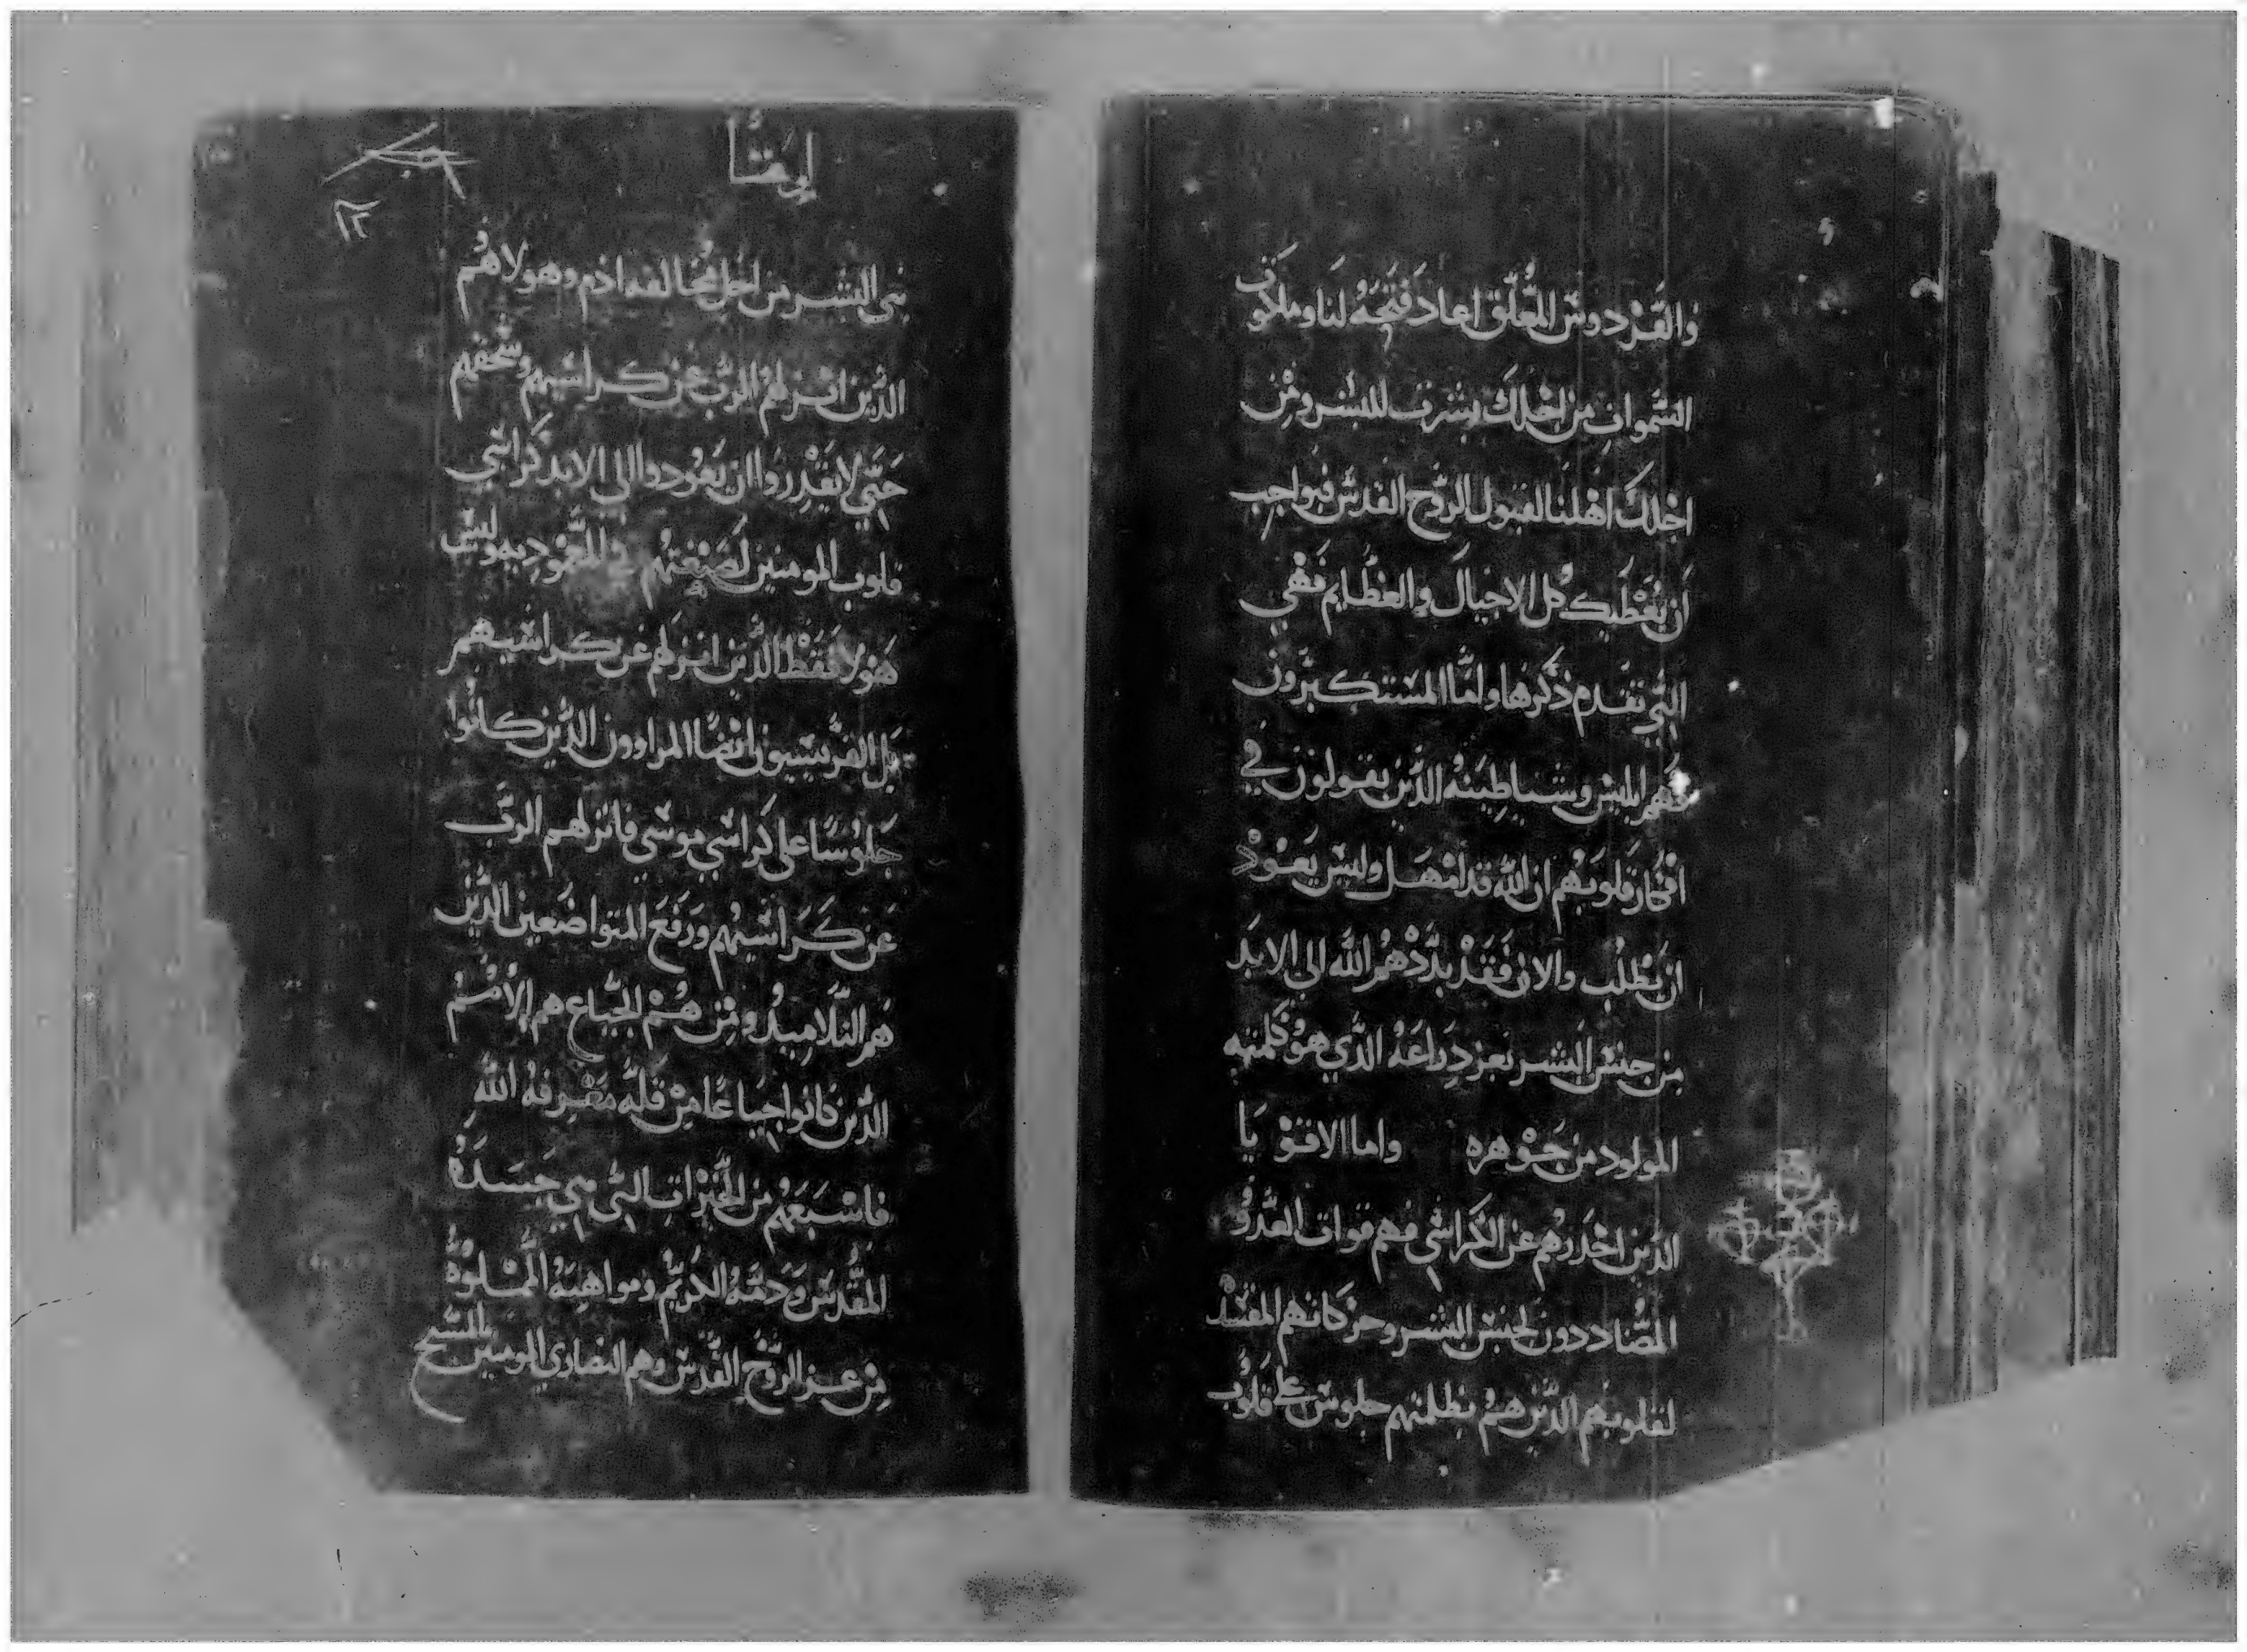 والفردوس المغلق اعاد فتحه لنا وملكوت
السموات من اجلك يشرف للبشر ومن
اجلك اهلنا لقبول الروح القدس فبواجب
ان يعطيك كل الاجيال والعظايم فهي
التي تقدم ذكرها واما المستكبرون
فهم ابليس وشياطينه الذين يقولون في
افكار قلوبهم ان الله قد امهل وليس يعود
ان يطلب والان فقد بددهم الله الى الابد
من جنس البشر بعز دراعه الذي هو كلمته
المولود من جوهره واما الاقويا
الذين احدرهم عن الكراسي فهم قوات العدو
المضاددون لجنس البشر وحركاتهم المفسد
لقلوبهم الذين هم بظلمتهم جلوس على قلوب
ايضا
١٢
بني البشر من اجل مخالفه ادم وهولاهم
الذين انزلهم الرب عن كراسيهم وسحقهم
حتي لا يقدروا ان يعودوا الي الابد كراسي
قلوب المومنين لصبغتهم في المعوديه وليس
هولا فقط الذين انزلهم عن كراسيهم
بل الفريسيون ايضا المراوون الذين كانوا
جلوسا على كراسي موسي فانزلهم الرب
عن كراسيهم ورفع المتواضعين الذين
هم التلاميد ومن هم الجياع هم الامم
الذين كانوا جياعا من قله معرفه الله
فاشبعهم من الخيرات التي هي جسده
المقدس ودمه الكريم ومواهبه المملوه
من عز الروح القدس وهم النصاري المومنين بالمسيح